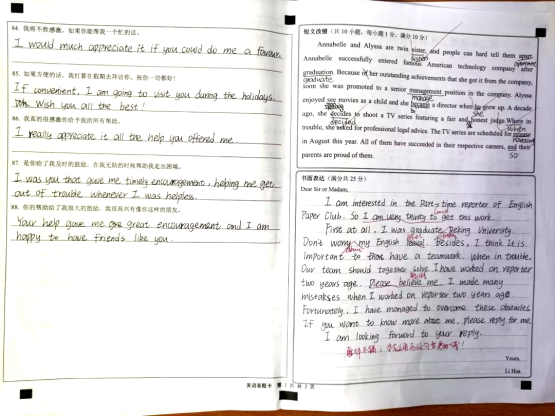 84. 我将不胜感激，如果你能帮我一个忙的话。
I would much appreciate it if you could do me a favour.
85. 如果方便的话，我打算在假期去拜访你。祝你一切都好！
If convenient, I am going to visit you during the holidays.
Wish you all the best!
86. 我真的很感激你给予我的所有帮助。
I really appreciate it all the help you offered me.
87. 是你给了我及时的鼓励，在我无助的时候帮助我走出困境。
I was you that gave me timely encouragement, helping me get
out of trouble whenever I was helpless.
88. 你的帮助给了我很大的鼓励，我很高兴有像你这样的朋友。
Your help gave me great encouragement and I am
happy to have friends like you.
短文改错（共 10 小题，每小题 1 分，满分 10 分）
Annabelle and Alyssa are twin sister, and people can tell them apart.
Annabelle successfully entered famous American technology company after
graduation. Because of her outstanding achievements that she got it from company,
graduate
soon she was promoted to a senior management position in the company. Alyssa
enjoyed see movies as a child and she became a director when he grow up. A decade
she
ago, she decides to shoot a TV series featuring a fair and honest judge. Where in
decided when
trouble, she asked for professional legal advice. The TV series are scheduled for release
in August this year. All of them have succeeded in their respective careers, and their
so
parents are proud of them.
书面表达（满分共 25 分）
Dear Sir or Madam,
I am interested in the Part-time reporter of English
Paper Club. So I am very to get this work.
First at all, I was graduate Peking University.
Don't worry my English Besides, I think It is
important to have a teamwork, when in trouble.
Our team should together solve. I have worked on reporter
two years age. Please believe me. I made many
mistakses when I worked on reporter two years age
Fortunately, I have managed to overcome these obstacles
If you want to know more about me, please reply for me.
I am looking forward to your reply.
Yours,
Li Hua
英语答题卡 第 2 页 共 2 页